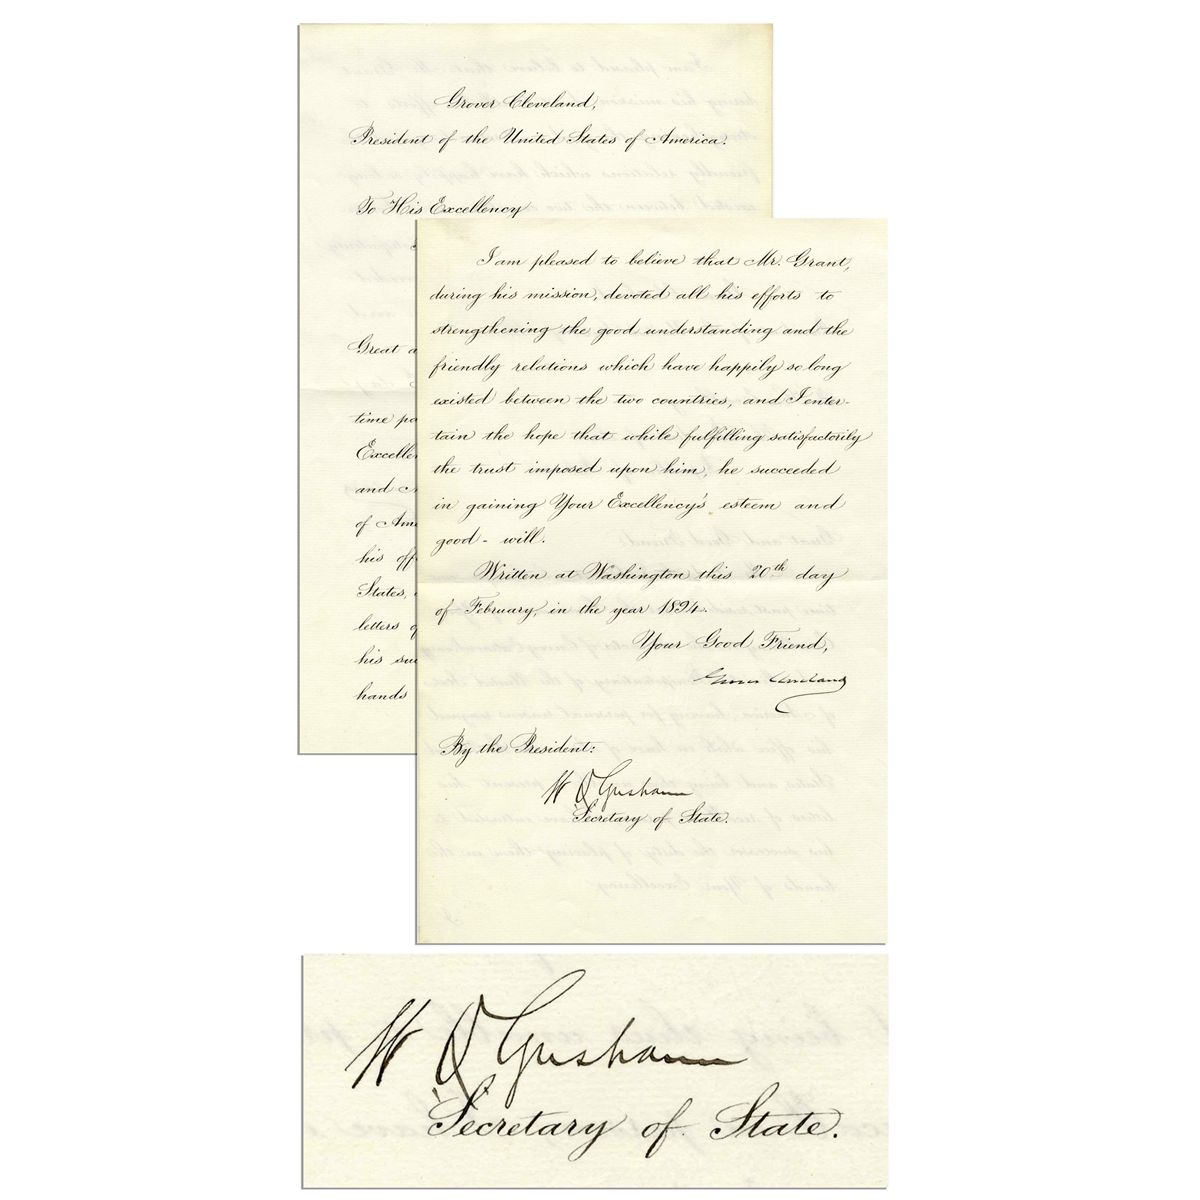 Grover Cleveland,
President of the United States of America.
To His Excellency
Great a
time pa
Excelle
and
of Ame
his off
States,
letters o
his su
hands
I am pleased to believe that Mr. Grant,
during his mission, devoted all his efforts to
strengthening the good understanding and the
friendly relations which have happily so long
existed between the two countries, and I enter-
tain the hope that while fulfilling satisfactorily
the trust imposed upon him, he succeeded
in gaining Your Excellency's esteem and
good-will.
Written at Washington this 20th day
of February, in the year 1894.
Your Good Friend,
Grover Cleveland
By the President:
W Q Gresham
Secretary of State.
W Q Gresham
Secretary of State.